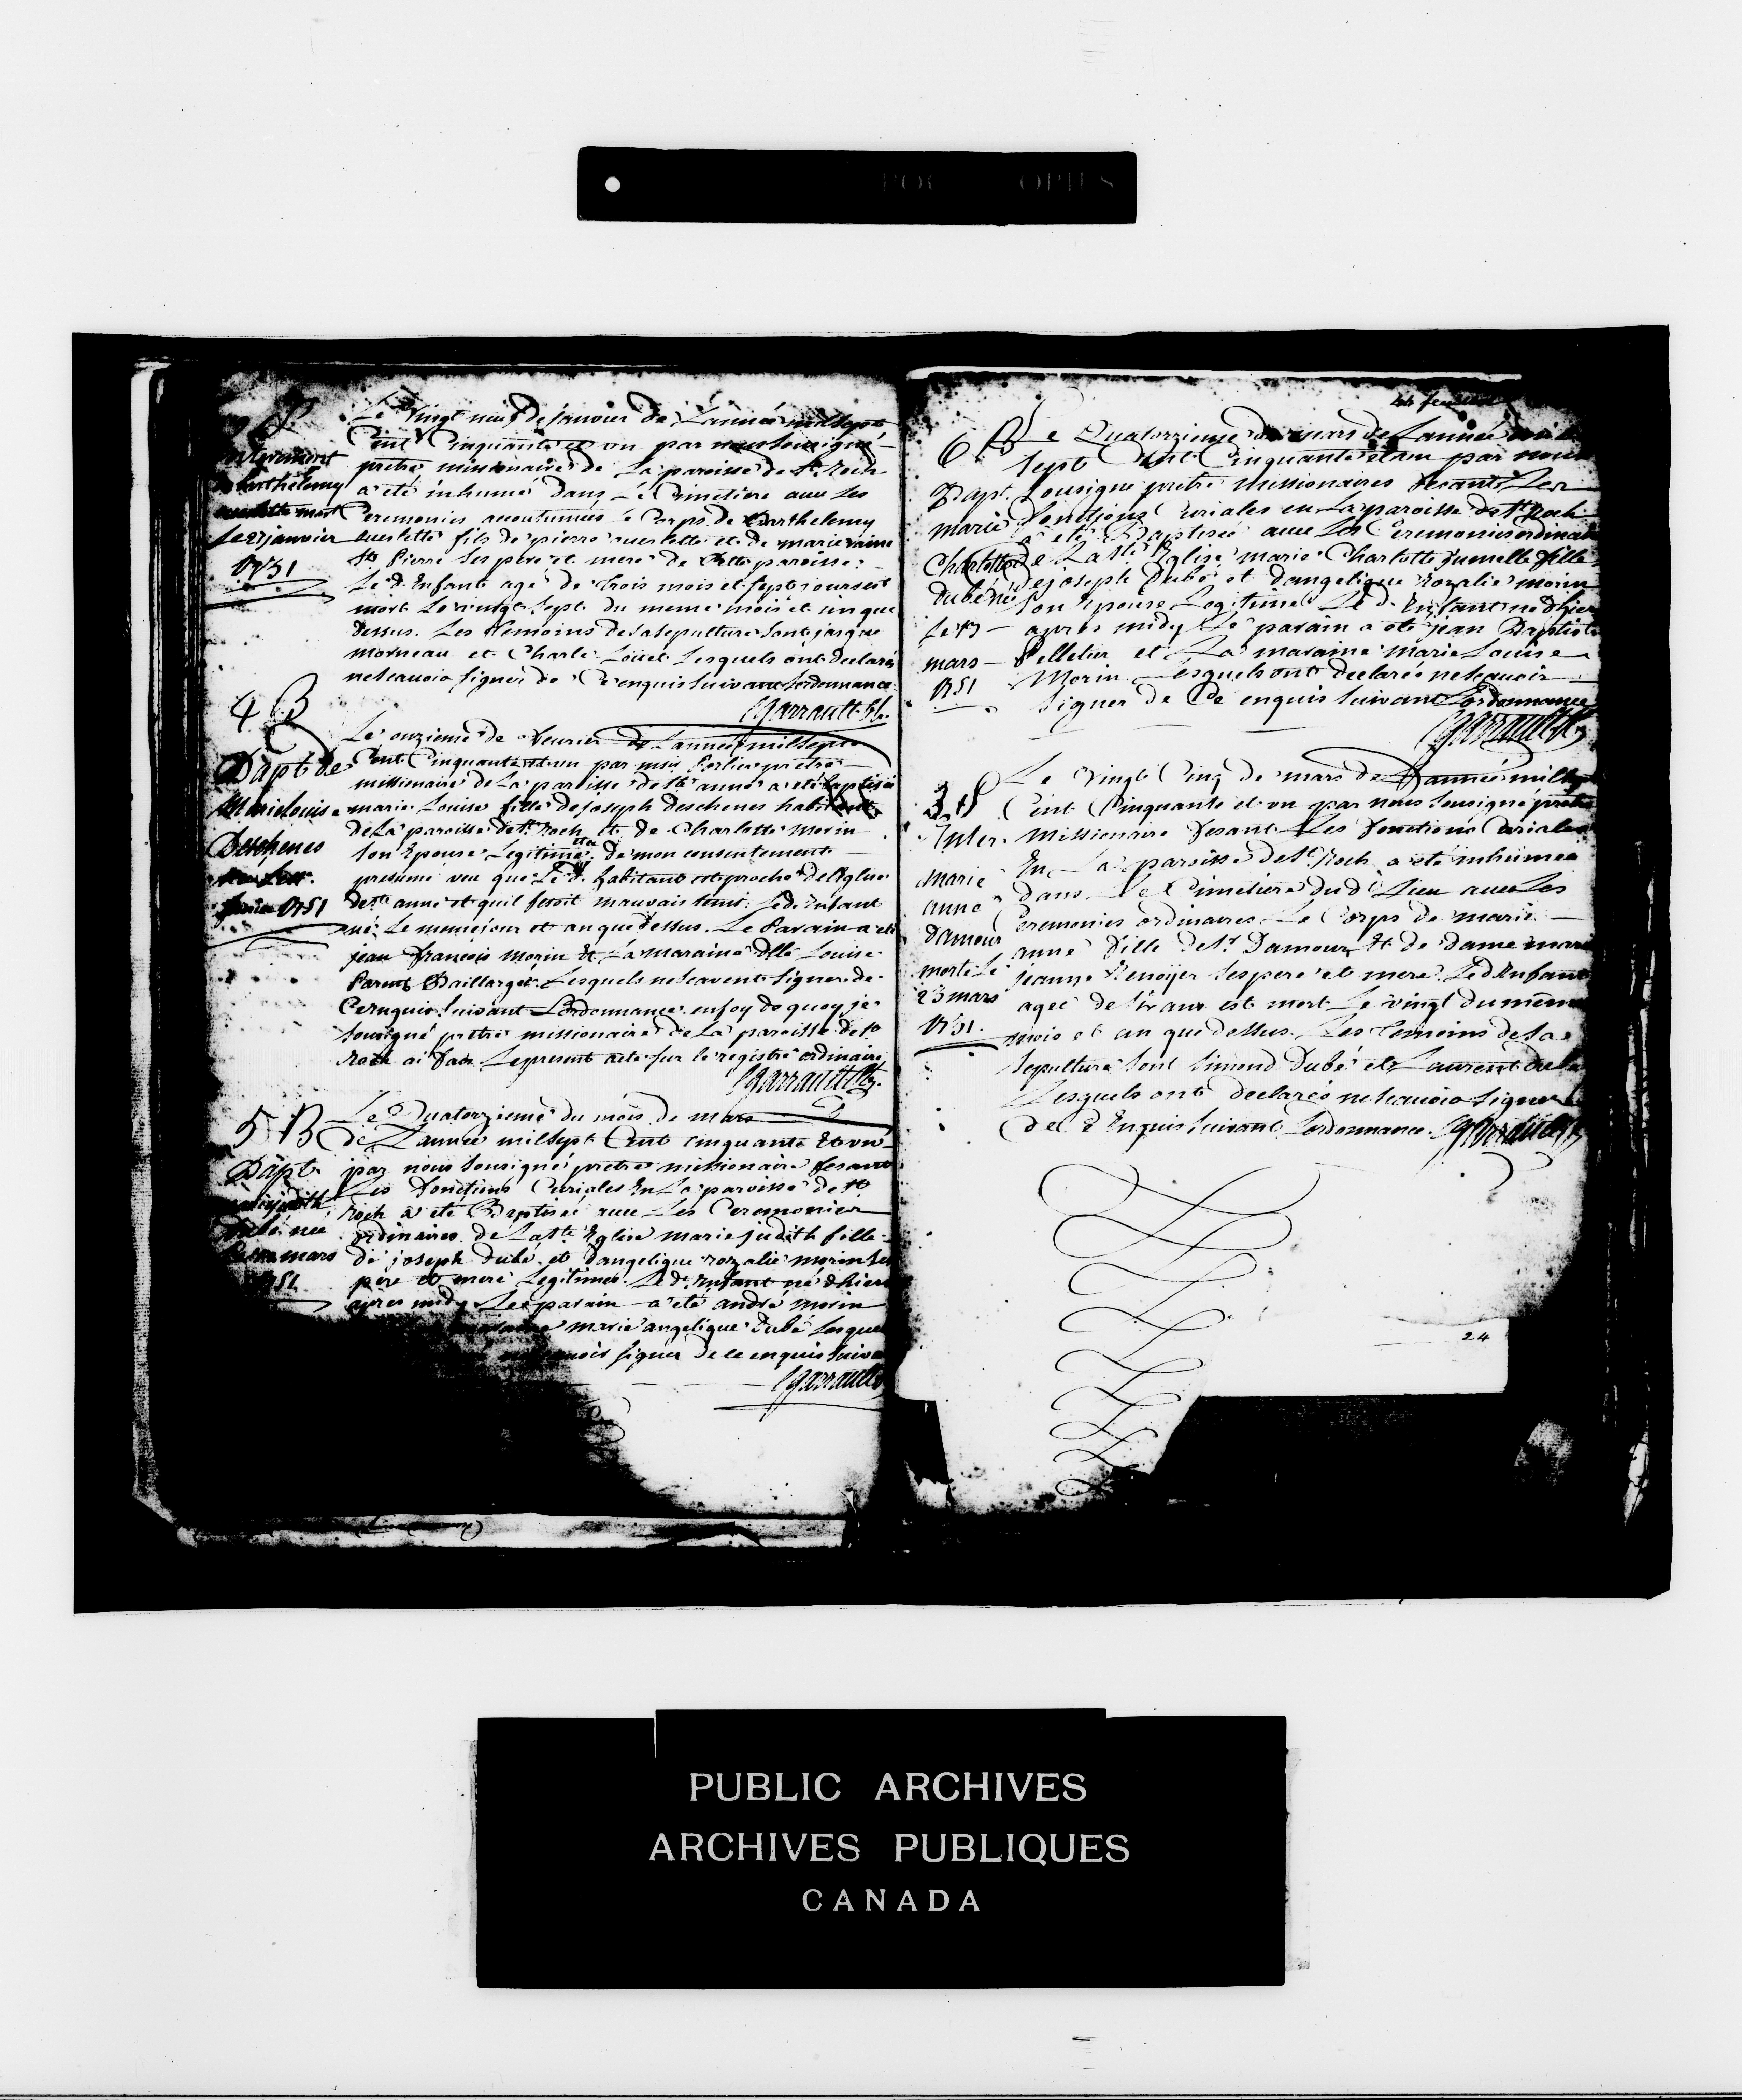 S
Le vingt neuf de janvier de L'année mil sept
Cent Cinquante et un par nous Sousigné
prêtre missionaire de La paroisse de St Roch
a été inhumé dans Le Cimetiere avec Les
Ceremonies accoutumées le Corps de Barthelemy
ouelette fils de pierre ouelette et de marie
St Pierre Ses pere et mere de Cette paroisse:
Le d. Enfant agé de trois mois et sept jours est
mort Le vingt sept du meme mois et an que
dessus. Les temoins de sa sepulture sont
morneau et Charle Loüet Lesquels ont declarés
ne scavoir signer de Ce enquis Suivant Lordonnance
Barthelemy
mort
Le 27 janvier
1751
4 B
Bapt de
Marie Louise
Deschenes
1751
Le onzieme de fevrier de L'année mil sept
Cent Cinquante et un par prêtre
missionaire de La paroisse de Ste anne a été baptisée
marie Louise fille de joseph deschenes habitant
de La paroisse de St Roch et de Charlotte Morin
Son Epouse Legitime de mon consentement
presumé veu que Le d. habitant est proche de lEglise
de Ste anne et quil fesoit mauvais tems. Le d. Enfant
né Le meme jour et an que dessus. Le Parain a été
jean françois morin et La maraine Louise
Parent Baillargé Lesquels ne scavent Signer de
Ce enquis Suivant Lordonnance enfoy de quoy je
Sousigné prêtre missionaire de La paroisse de St
Roch ai fait Le present acte sur le registre ordinaire
5 B
Bapt
marie judith
Dubé née
mars
1751
Le Quatorzieme du mois de mars
de L'année mil sept Cent cinquante et un
par nous Sousigné prêtre missionaire fesant
Les fonctions Curiales En La paroisse de St
Roch a été Baptisée avec Les Ceremonies
ordinaires de La Ste Eglise marie judith fille
de joseph dubé et dangelique rozalie morin Ses
pere et mere Legitimes. Le d. Enfant né d'hier
apres midy Le parain a été andré morin
marie angelique Dubé Lesquels
signer de ce enquis Suivant
6 B
Bapt
marie
Charlotte
Dubé née
Le 13
mars
1751
Le Quatorzieme de mars de L'année mil
Sept Cent Cinquante et un par nous
Sousigné prêtre missionaires fesant Les
fonctions Curiales en La paroisse de St Roch
a été Baptisée avec Les Ceremonies ordinaires
de La Ste Eglise marie Charlotte jumelle fille
de joseph Dubé et dangelique rozalie morin
Son Epouse Legitime Le d. Enfant né d'hier
apres midy Le parain a été jean Baptiste
Pelletier et La maraine marie Louise
Morin Lesquels ont declarés ne scavoir
Signer de Ce enquis suivant Lordonnance
3 S
Inter.
marie
anne
damour
morte Le
23 mars
1751.
Le vingt Cinq de mars de L'année mil sept
Cent Cinquante et un par nous Sousigné prêtre
Missionaire fesant Les fonctions Curiales
En La paroisse de St Roch a été inhumée
dans Le Cimetiere du d. Lieu avec Les
Ceremonies ordinaires Le Corps de marie
anne fille de Sr Damour et de dame marie
jeanne Renoyer Ses pere et mere. Le d. Enfant
agée de est mort Le vingt du même
mois et an que dessus. Les temoins de Sa
Sepulture Sont Simond Dubé et Laurent Dubé
Lesquels ont declarés ne scavoir Signer
de Ce Enquis Suivant Lordonnance.
24
PUBLIC ARCHIVES
ARCHIVES PUBLIQUES
CANADA